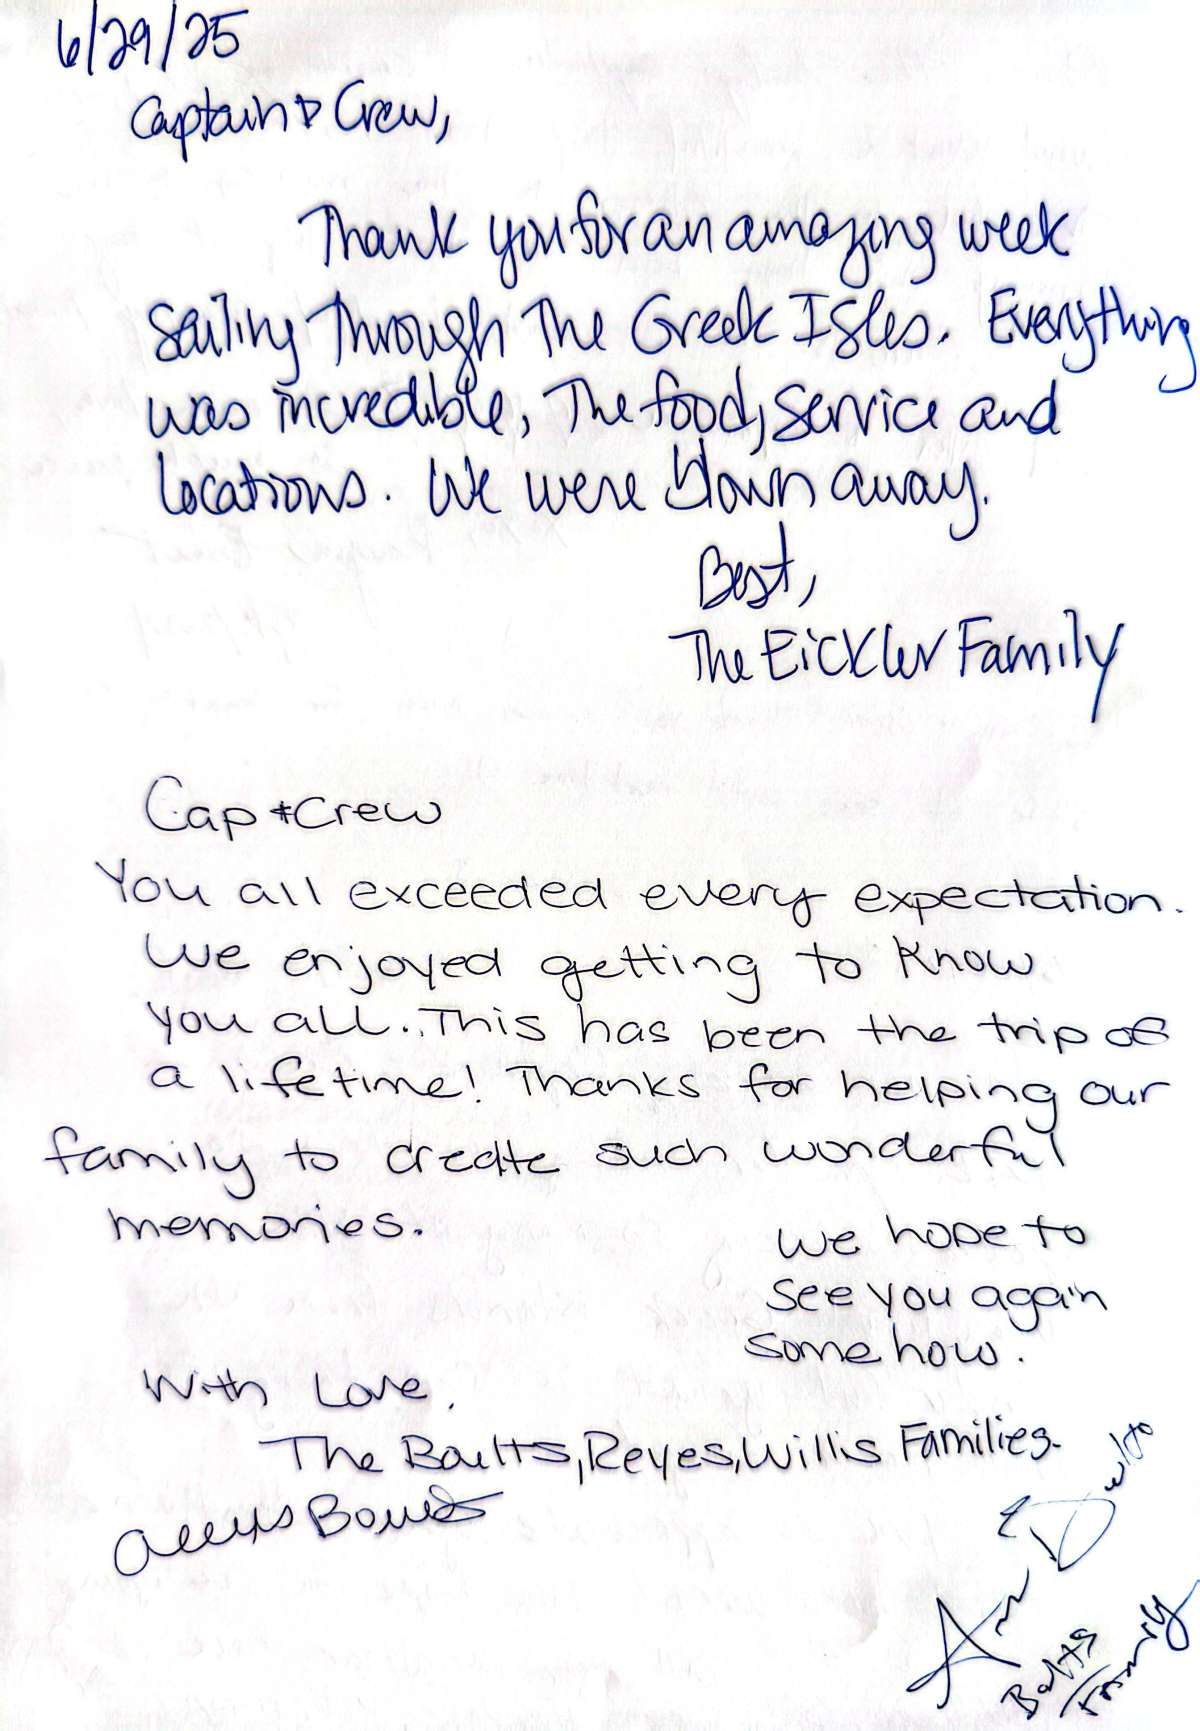 6/29/25
Captain & Crew,
Thank you for an amazing week
sailing through the Greek Isles. Everything
was incredible, the food, service and
locations. We were blown away.
Best,
The Eickler Family
Cap + Crew
You all exceeded every expectation.
We enjoyed getting to know
you all. This has been the trip of
a lifetime! Thanks for helping our
family to create such wonderful
memories.
We hope to
see you again
somehow.
With Love,
The Boults, Reyes, Willis Families.
Alexis Boults
Boults
Family